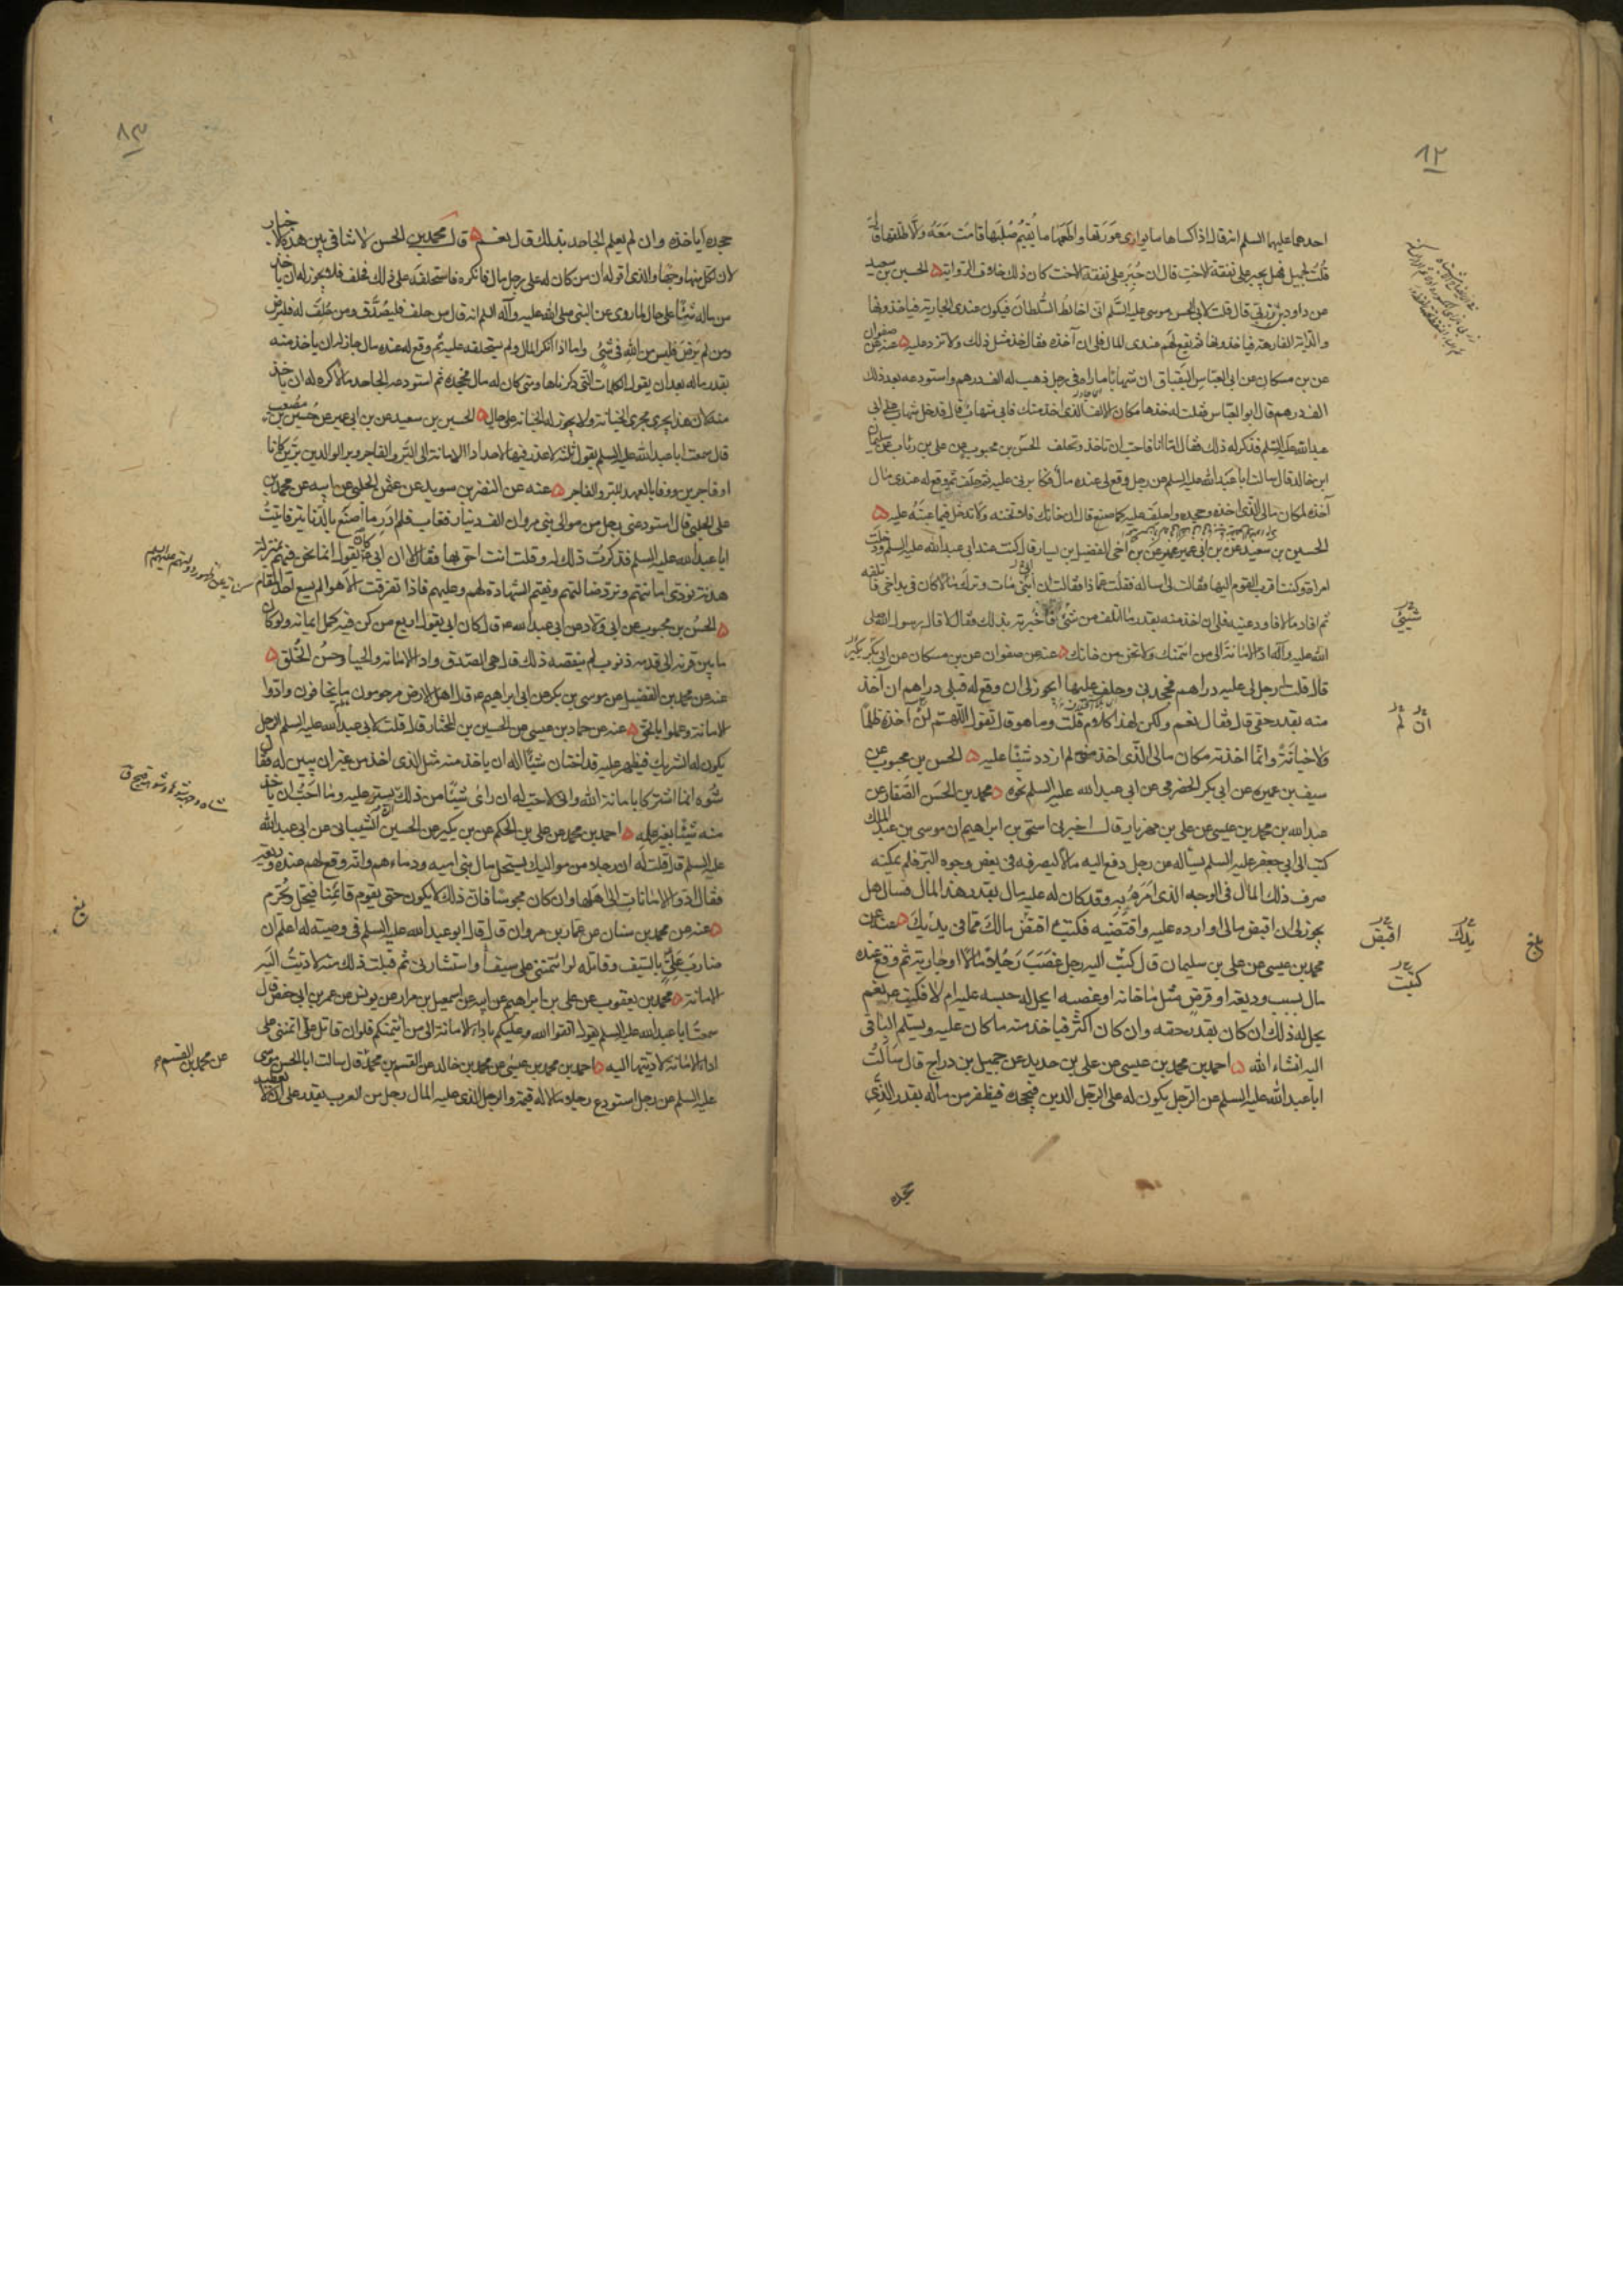 ٨٢
احدهما عليهما السلم انه قال اذا كساها ما يوارى عورتها واطعمها ما يقيم صلبها قامت معه والا طلقها
قلت لجميل فهل يجبر على نفقة الاخت قال ان جبر على نفقة الاخت كان ذلك خلاف الرواية الحسين بن سعيد
عن داود بن زربى قال قلت لابى الحسن موسى عليه السلم انى اخالط السلطان فيكون عندى الجارية فياخذونها
والدابة الفارهة فياخذونها ثم يقع لهم عندى المال فلى ان آخذه فقال خذ مثل ذلك ولا تزد عليه عنه عن صفوان
عن بن مسكان عن ابى العباس البقباق ان شهابا ماراه فى رجل ذهب له الف درهم واستودعه بعد ذلك
الف درهم قال ابو العباس فقلت له خذها مكان الالف الذى اخذ منك فابى شهاب قال فدخل شهاب على ابى
عبد الله عليه السلم فذكر له ذلك فقال اما انا فاحب ان تاخذ وتحلف الحسن بن محبوب عن على بن رئاب عن سليمان
ابن خالد قال سالت ابا عبد الله عليه السلم عن رجل وقع لى عنده مال فكابرنى عليه ثم حلف ثم وقع له عندى مال
آخذه لمكان مالى الذى اخذه وجحده واحلف عليه كما صنع قال ان خانك فلا تخنه ولا تدخل فيما عبته عليه
الحسين بن سعيد عن بن ابى عمير عن بن اخى الفضيل بن يسار قال كنت عند ابى عبد الله عليه السلم ودخلت
امراة وكنت اقرب القوم اليها فقالت لى اساله فقلت عما ذا فقالت ان ابنى مات وترك مالا كان فى يد اخى فاتلفه
ثم افاد مالا فاودعنيه فلى ان اخذ منه بقدر ما اتلف من شئ فاخبرته بذلك فقال لا قال رسول الله صلى
الله عليه وآله اد الامانة الى من ائتمنك ولا تخن من خانك عنه عن صفوان عن بن مسكان عن ابى بكر
قال قلت له رجل لى عليه دراهم فجحدنى وحلف عليها ايجوز لى ان وقع له قبلى دراهم ان آخذ
منه بقدر حقى قال فقال نعم ولكن لهذا كلام قلت وما هو قال تقول اللهم لن آخذه ظلما
ولا خيانة وانما اخذته مكان مالى الذى اخذ منى لم ازدد شيئا عليه الحسن بن محبوب عن
سيف بن عميرة عن ابى بكر الحضرمى عن ابى عبد الله عليه السلم نحوه محمد بن الحسن الصفار عن
عبد الله بن محمد بن عيسى عن على بن مهزيار قال اخبرنى اسحق بن ابراهيم ان موسى بن عبد الملك
كتب الى ابى جعفر عليه السلم يساله عن رجل دفع اليه مالا ليصرفه فى بعض وجوه البر فلم يمكنه
صرف ذلك المال فى الوجه الذى امره به وقد كان له عليه مال بقدر هذا المال فسال هل
يجوز لى ان اقبض مالى او ارده عليه واقتضيه فكتب اقبض مالك مما فى يديك عنه عن
محمد بن عيسى عن على بن سليمان قال كتب اليه رجل غصب رجلا مالا او جارية ثم وقع عنده
مال بسبب وديعة او قرض مثل ما خانه او غصبه ايحل له حبسه عليه ام لا فكتب نعم
يحل له ذلك ان كان بقدر حقه وان كان اكثر فياخذ منه ما كان عليه ويسلم الباقى
اليه انشاء الله احمد بن محمد بن عيسى عن على بن حديد عن جميل بن دراج قال سالت
ابا عبد الله عليه السلم عن الرجل يكون له على الرجل الدين فيجحده فيظفر من ماله بقدر الذى
جحده
شيئ
ان لم
يدك
اقبض
كتبت
بلغ
٨٣
جحده اياخذه وان لم يعلم الجاحد بذلك قال نعم قال محمد بن الحسن لا تنافى بين هذه الاخبار
لان لكل منها وجها والذى اقوله ان من كان له على رجل مال فانكره فاستحلفه على ذلك فحلف فلا يجوز له ان ياخذ
من ماله شيئا على حال لما روى عن النبى صلى الله عليه وآله السلم انه قال من حلف فليصدق ومن حلف له فليرض
ومن لم يرض فليس من الله فى شئ واما اذا انكر المال ولم يستحلفه عليه ثم وقع له عنده مال جاز له ان ياخذ منه
بقدر ماله بعد ان يقول الكلمات التى ذكرناها ومتى كان له مال فجحده ثم استودعه الجاحد مالا كره له ان ياخذ
منه لان هذا يجرى مجرى الخيانة ولا يجوز له الخيانة على حال الحسين بن سعيد عن بن ابى عمير عن حسين بن مصعب
قال سمعت ابا عبد الله عليه السلم يقول ثلثة لا عذر فيها لاحد اداء الامانة الى البر والفاجر وبر الوالدين برين كانا
او فاجرين ووفا بالعهد للبر والفاجر عنه عن النضر بن سويد عن بعض الحلبى عن ابيه عن محمد بن
على الحلبى قال استودعنى رجل من موالى بنى مروان الف دينار فغاب فلم ادر ما اصنع بالدنانير فاتيت
ابا عبد الله عليه السلم فذكرت ذلك له وقلت انت احق بها فقال لا ان ابى كان يقول انما نحن فيهم بمنزلة
هدنة نؤدى امانتهم ونرد ضالتهم ونقيم الشهادة لهم وعليهم فاذا تفرقت الاهوا لم يسع احد المقام
الحسن بن محبوب عن ابى ولاد عن ابى عبد الله ع قال كان ابى يقول اربع من كن فيه كمل ايمانه ولو كان
ما بين قرنه الى قدمه ذنوب لم ينقصه ذلك قال هى الصدق واداء الامانة والحياء وحسن الخلق
عنه عن محمد بن الفضيل عن موسى بن بكر عن ابى ابراهيم ع قال اهل الارض مرحومون ما يخافون وادوا
الامانة وعملوا بالحق عنه عن حماد بن عيسى عن الحسين بن المختار قال قلت لابى عبد الله عليه السلم الرجل
يكون له الشريك فيظهر عليه قد اختان شيئا اله ان ياخذ منه مثل الذى اخذ من غير ان يبين له فقال
شوه انما اشتركا بامانة الله وانى لاحب له ان راى شيئا من ذلك يستر عليه وما احب ان ياخذ
منه شيئا بغير علمه احمد بن محمد عن على بن الحكم عن بن بكير عن الحسين الشيبانى عن ابى عبد الله
عليه السلم قال قلت له ان رجلا من مواليك يستحل مال بنى اميه ودماءهم وانه وقع لهم عنده وديعة
فقال ادوا الامانات الى اهلها وان كان مجوسا فان ذلك لا يكون حتى يقوم قائمنا فيحل ويحرم
عنه عن محمد بن سنان عن عمار بن مروان قال قال ابو عبد الله عليه السلم فى وصيته له اعلم ان
ضارب على بالسيف وقاتله لو ائتمننى على سيف واستشارنى ثم قبلت ذلك منه لاديت اليه
الامانة محمد بن يعقوب عن على بن ابراهيم عن ابيه عن اسمعيل بن مرار عن يونس عن عمر بن ابى حفص قال
سمعت ابا عبد الله عليه السلم يقول اتقوا الله وعليكم باداء الامانة الى من ائتمنكم فلو ان قاتل على ائتمننى على
اداء الامانة لاديتها اليه احمد بن محمد بن عيسى عن محمد بن خالد عن القسم بن محمد قال سالت ابا الحسن موسى
عليه السلم عن رجل استودع رجلا مالا له قيمة والرجل الذى عليه المال رجل من العرب يقدر على ان لا يعطيه
بلغ
عن محمد بن القسم